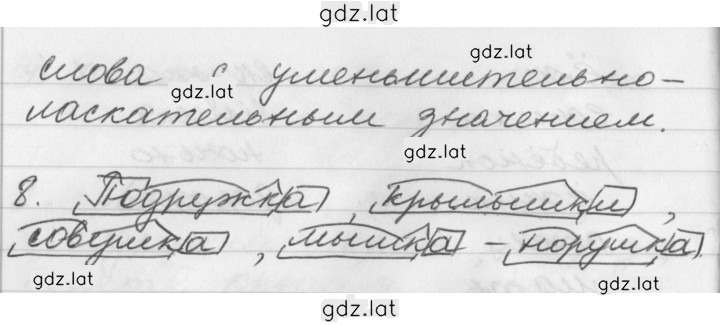 gdz.lat
gdz.lat
слова с уменьшительно-
gdz.lat
ласкательным значением.
gdz.lat
8. Подружка, крылышки,
совушка, мышка - норушка
gdz.lat gdz.lat
gdz.lat